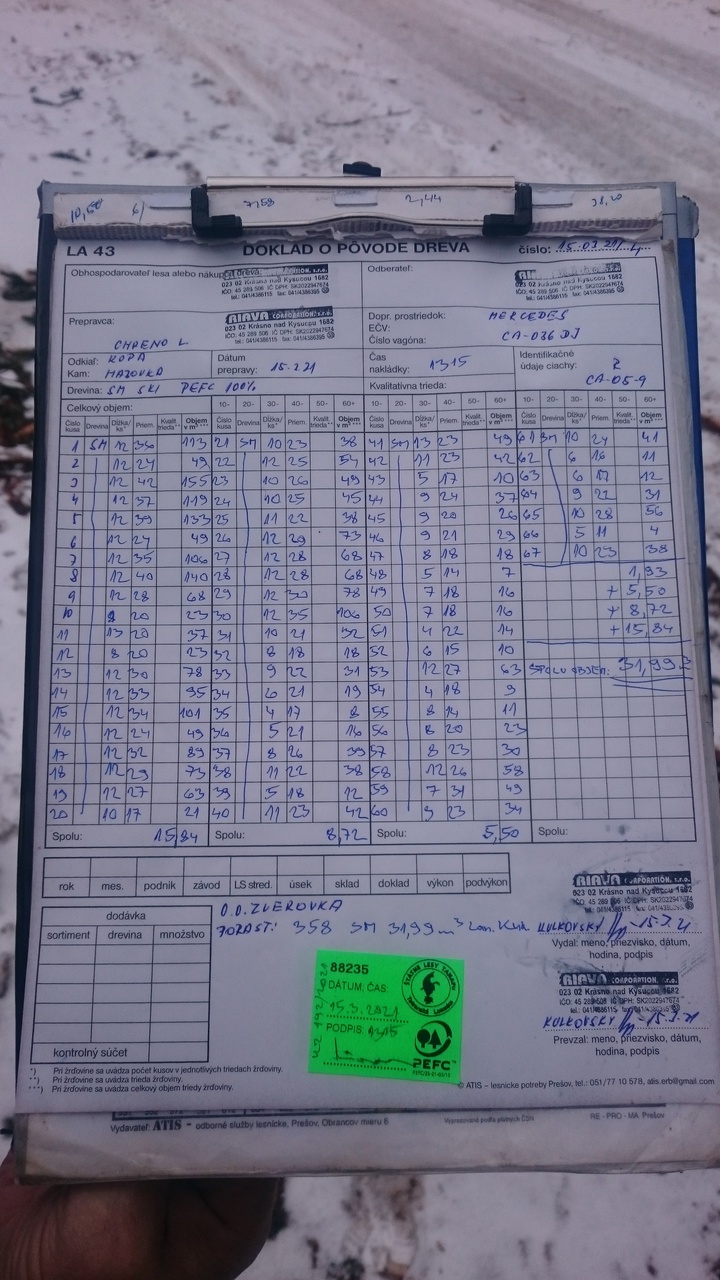 10,50 6/ 7,58 2,44 31,20
LA 43 DOKLAD O PÔVODE DREVA číslo: 15.03.21/L
Obhospodarovateľ lesa alebo nákupcu dreva: Odberateľ:
CORPORATION, s.r.o.
023 02 Krásno nad Kysucou 1682
IČO: 45 289 506 IČ DPH: SK2022947674
tel.: 041/4386115 fax: 041/4386395
Prepravca: RIAVA CORPORATION, s.r.o.
023 02 Krásno nad Kysucou 1682
Dopr. prostriedok: MERCEDES
EČV: CA-036DJ
Číslo vagóna:
Odkiaľ: ROPA
Kam: MAZOVKA
Dátum prepravy: 15.2.21
Čas nakládky: 1315
Identifikačné údaje ciachy: Z CA-05-9
Drevina: SM SKI PEFC 100% Kvalitatívna trieda:
Celkový objem: 10- 20- 30- 40- 50- 60+ 10- 20- 30- 40- 50- 60+ 10- 20- 30- 40- 50- 60+
Číslo kusa Drevina Dĺžka/ks* Priem. Kvalit. trieda** Objem v m³ ***
1 SM 12 36 113 21 SM 10 23 38 41 SM 13 23 49 61 SM 10 24 41
2 12 24 49 22 12 25 54 42 11 23 42 62 6 16 11
3 12 42 155 23 10 26 49 43 5 17 10 63 6 17 12
4 12 37 119 24 10 25 45 44 9 24 37 64 9 22 31
5 12 39 133 25 11 22 38 45 9 20 26 65 10 28 56
6 12 24 49 26 12 29 73 46 9 21 29 66 5 11 4
7 12 35 106 27 12 28 68 47 8 18 18 67 10 23 38
8 12 40 140 28 12 28 68 48 5 14 7 1,93
9 12 28 68 29 12 30 78 49 7 18 16 + 5,50
10 8 20 23 30 12 35 106 50 7 18 16 + 8,72
11 13 20 37 31 10 21 32 51 4 22 14 + 15,84
12 8 20 23 32 8 18 18 52 6 15 10
13 12 30 78 33 9 22 31 53 12 27 63 SPOLU OBJEM: 31,99
14 12 33 95 34 6 21 19 54 4 18 9
15 12 34 101 35 4 17 8 55 8 14 11
16 12 24 49 36 5 21 16 56 8 20 23
17 12 32 89 37 8 26 39 57 8 23 30
18 12 29 73 38 11 22 38 58 12 26 58
19 12 27 63 39 5 18 12 59 7 31 49
20 10 17 21 40 11 23 42 60 9 23 34
Spolu: 15,84 Spolu: 8,72 Spolu: 5,50 Spolu:
rok mes. podnik závod LS stred. úsek sklad doklad výkon podvýkon
RIAVA CORPORATION, s.r.o.
023 02 Krásno nad Kysucou 1682
dodávka
sortiment drevina množstvo
kontrolný súčet
O.O. ZVEROVKA
PORAST: 358 SM 31,99 m³
KULKOVSKY 15.3.21
Vydal: meno, priezvisko, dátum,
hodina, podpis
CORPORATION, s.r.o.
023 02 Krásno nad Kysucou 1682
KULKOVSKY 15.3.21
Prevzal: meno, priezvisko, dátum,
hodina, podpis
88235
DÁTUM, ČAS:
15.3.2021
PODPIS 1315
ŠTÁTNE LESY TANAPU
Tatranská Lomnica
PEFC
*) Pri žrďovine sa uvádza počet kusov v jednotlivých triedach žrďoviny.
**) Pri žrďovine sa uvádza trieda žrďoviny.
***) Pri žrďovine sa uvádza celkový objem triedy žrďoviny.
© ATIS – lesnícke potreby Prešov, tel.: 051/77 10 578, atis.erb@gmail.com
Vydavateľ: ATIS - odborné služby lesnícke, Prešov, Obrancov mieru 6
RE - PRO - MA Prešov